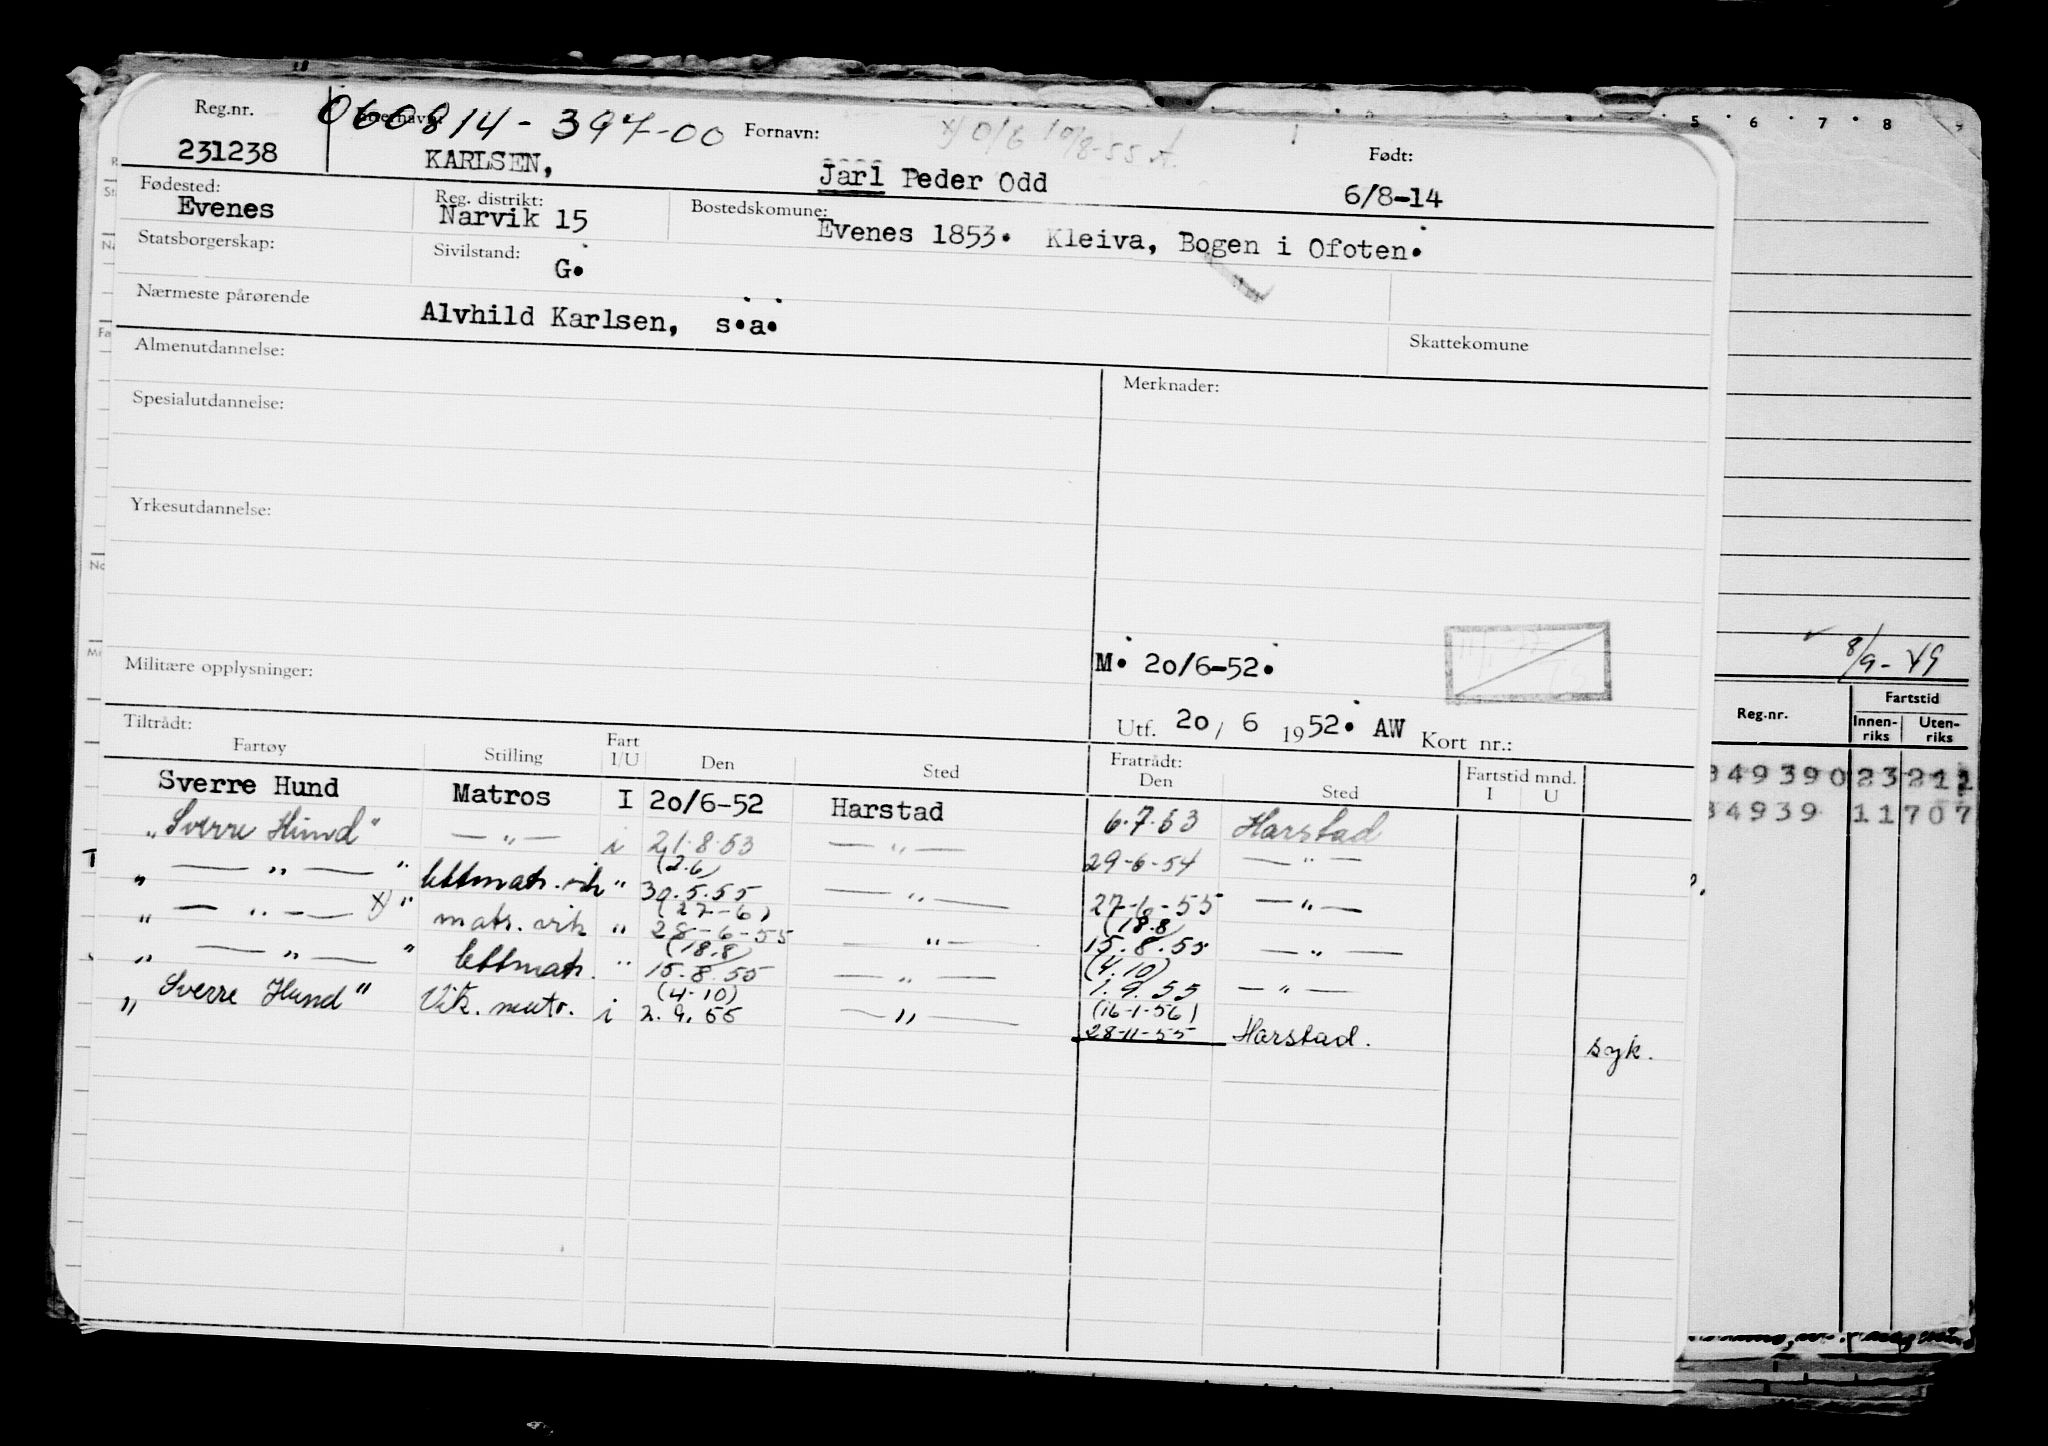 Reg.nr. 060814-397-00 Fornavn: x) 0/6 10/8-55 A. Født:
231238 KARLSEN, Jarl Peder Odd 6/8-14
Fødested: Reg. distrikt: Bostedskomune:
Evenes Narvik 15 Evenes 1853. Kleiva, Bogen i Ofoten.
Statsborgerskap: Sivilstand: G.
Nærmeste pårørende Alvhild Karlsen, s.a.
Skattekomune
Almenutdannelse:
Merknader:
Spesialutdannelse:
Yrkesutdannelse:
M. 20/6-52.
Militære opplysninger:
Utf. 20/ 6 1952. AW Kort nr.:
Tiltrådt: Fratrådt:
Fartøy Stilling Fart I/U Den Sted Den Sted Fartstid mnd. I U
Sverre Hund Matros I 20/6-52 Harstad 6.7.53 Harstad
"Sverre Hund" — " — i 21.8.53 — " — 29-6-54 — " —
(2.6)
" — " — " lettmatr. vik " 30.5.55 — " — 27-6-55 — " —
(27-6) (18.8)
" — " — x) " matr. vik " 28-6-55 — " — 15.8.55 — " —
(18.8) (4.10)
" — " — " lettmatr. " 15.8.55 — " — 1.9.55 — " —
(4-10) (16-1-56)
" Sverre Hund" Vik. matr. i 2.9.55 — " — 28-11-55 Harstad. syk.
5 6 7 8 9
8/9-49
Reg.nr. Fartstid
Innen-riks Uten-riks
349390 23 211
34939 11 707